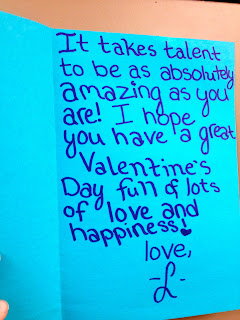 It takes talent
to be as absolutely
amazing as you
are! I hope
you have a great
Valentine's
Day full of lots
of love and
happiness!
love,
-L-